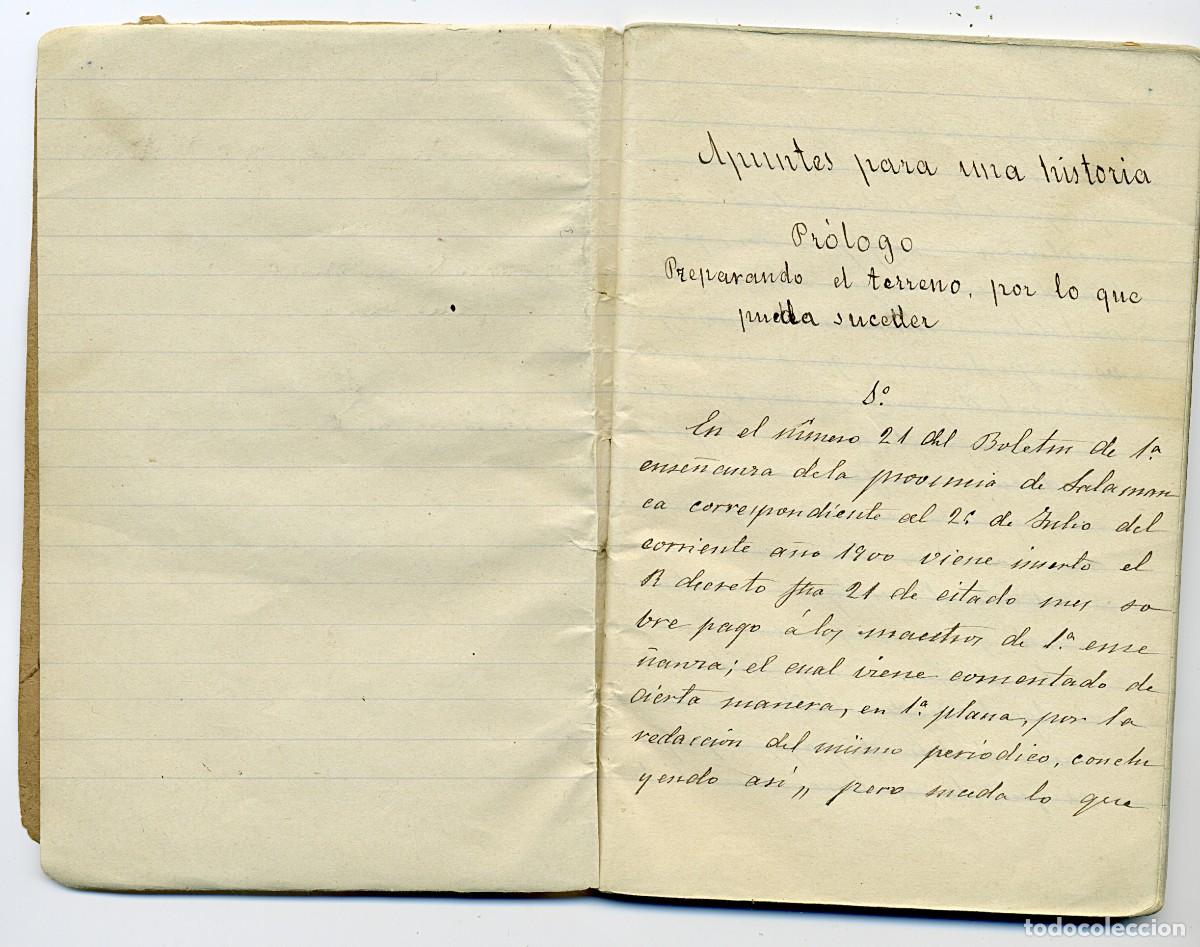 Apuntes para una historia
Prólogo
Preparando el terreno, por lo que
pueda suceder
En el número 21 del Boletin de 1.ª
enseñanza dela provincia de Salaman
ca correspondiente al de Julio del
corriente año 1900 viene inserto el
R decreto fha 21 de citado mes so
bre pago á los maestros de 1.ª ense
ñanza; el cual viene comentado de
cierta manera, en 1.ª plana, por la
redacción del mismo periódico, conclu
yendo así „ pero suceda lo que
todocoleccion